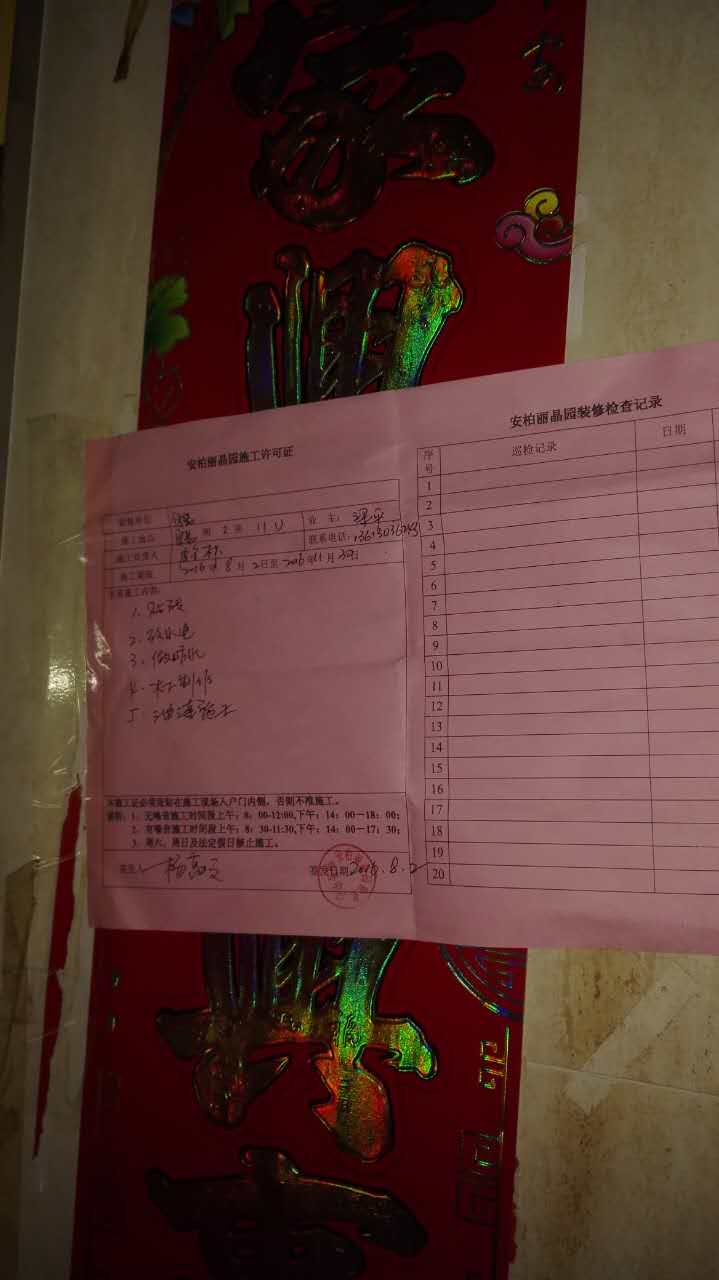 家
兴
安柏丽晶园施工许可证
装修单位
业 主：
施工地点
2
11
联系电话：
施工负责人
施工期限
2016年8月2日至2016年11月30日
主要施工内容：
1、贴砖
2、改水电
3、做防水
4、木工制作
5、油漆施工
本施工证必须张贴在施工现场入户门内侧，否则不准施工。
说明：1、无噪音施工时间段上午：8：00-12:00,下午：14：00—18：00；
2、有噪音施工时间段上午：8：30-11:30,下午：14：00—17：30；
3、周六、周日及法定假日禁止施工。
签发人
签发日期2016.8.2
安柏丽晶园装修检查记录
序号
巡检记录
日期
1
2
3
4
5
6
7
8
9
10
11
12
13
14
15
16
17
18
19
20